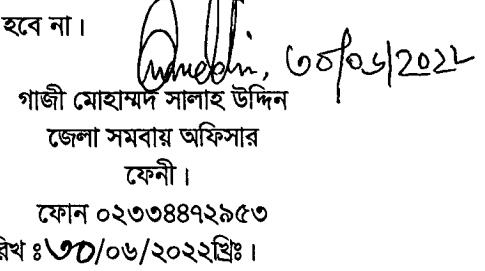 হবে না।
৩০/০৬/২০২২
গাজী মোহাম্মদ সালাহ উদ্দিন
জেলা সমবায় অফিসার
ফেনী।
ফোন ০২৩৩৪৪৭২৯৫৩
রিখ ঃ ৩০/০৬/২০২২খ্রিঃ।